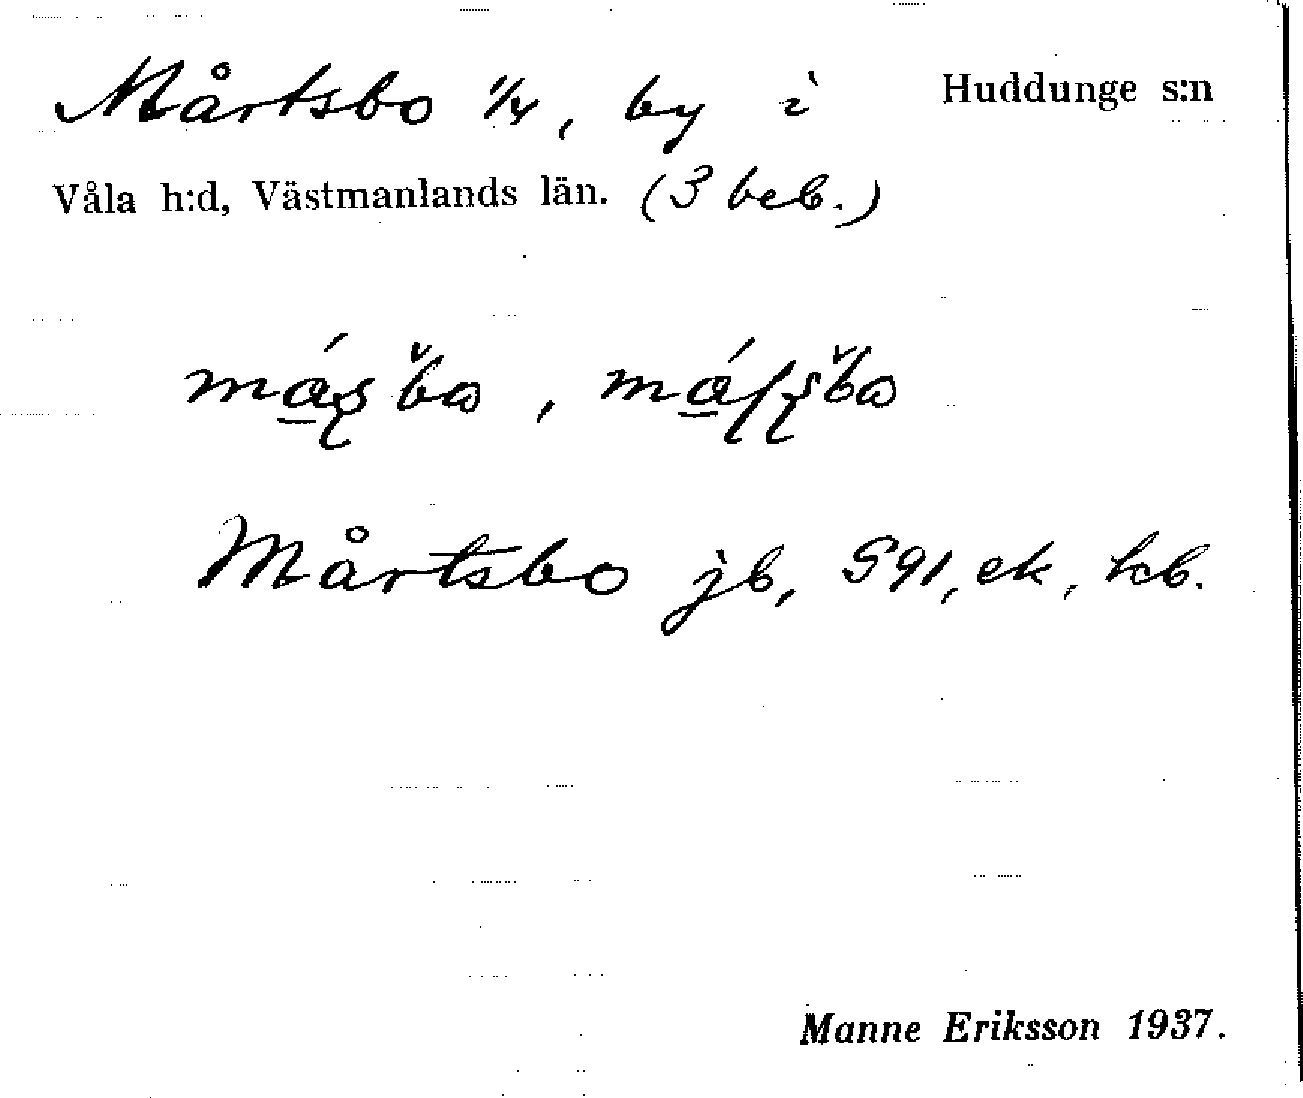 Mårtsbo 1/4, by i Huddunge s:n
Våla h:d, Västmanlands län. (3 beb.)
Mårtsbo jb, S91, ek, hcb.
Manne Eriksson 1937.